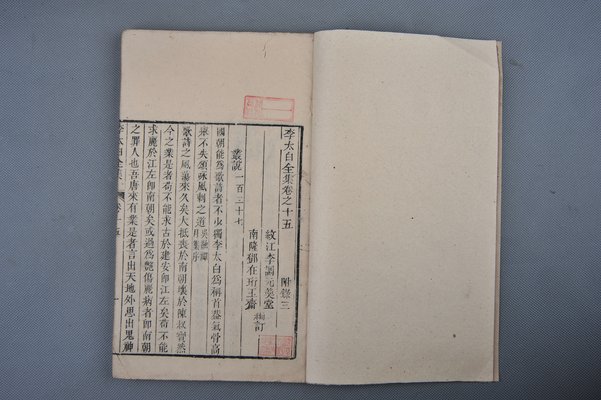 李太白全集卷之十五
附錄三
紋江李調元羹堂
南隆鄧在珩玉齋
編訂
叢說一百三十七
國朝能爲歌詩者不少獨李太白爲稱首蓋氣骨高
擧不失頌詠風刺之道吳融禪月集序
歌詩之風蕩來久矣大抵喪於南朝壞於陳叔寶然
今之業是者苟不能求古於建安卽江左矣苟不能
求麗於江左卽南朝矣或過爲艷傷麗病者卽南朝
之罪人也吾唐來有業是者言出天地外思出鬼神
李太白全集
卷十五
一